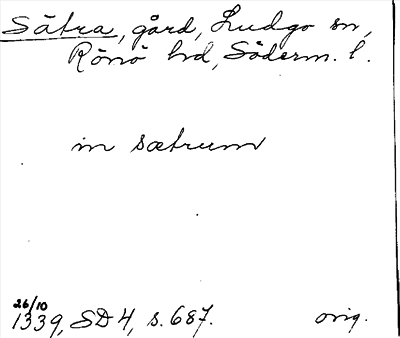 Sätra, gård, Ludgo sn,
Rönö hd, Söderm. l.
in sætrum
26/10
1339, SD 4, s. 687. orig.